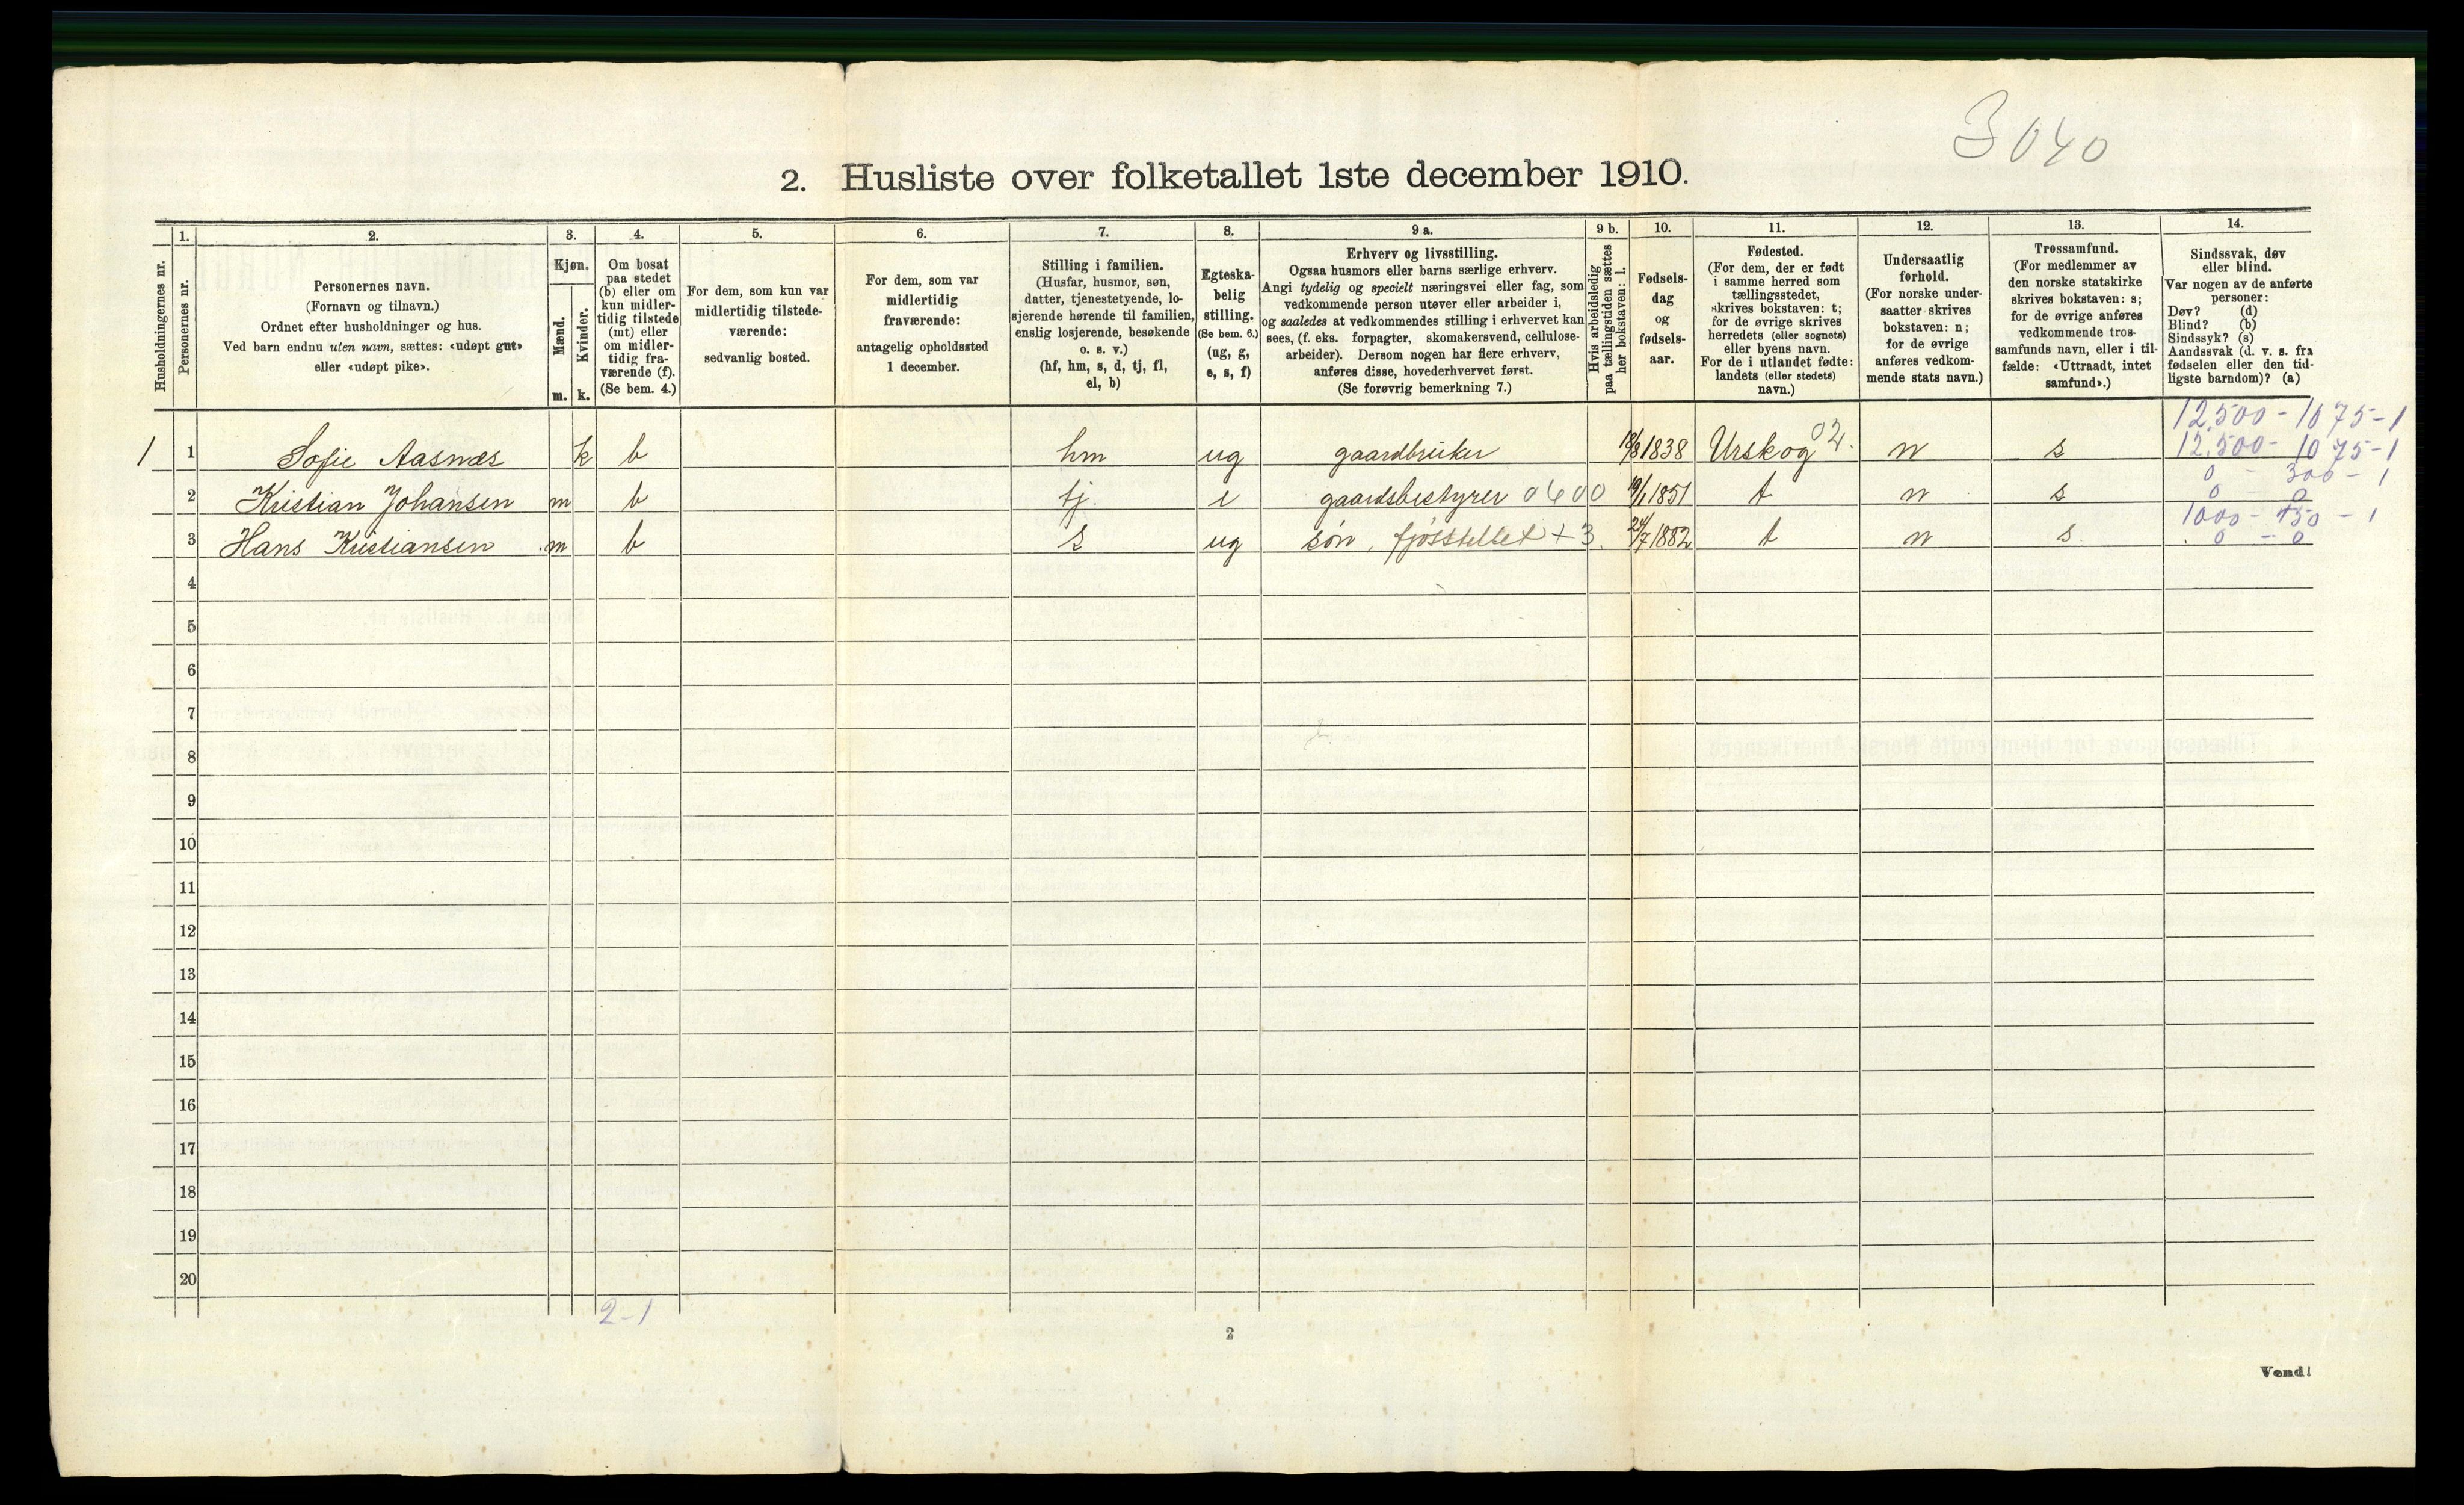 3040
2. Husliste over folketallet 1ste december 1910.
Husholdningernes nr.
1.
Personernes nr.
2.
Personernes navn.
(Fornavn og tilnavn.)
Ordnet efter husholdninger og hus.
Ved barn endnu uten navn, sættes: «udøpt gut»
eller «udøpt pike».
3.
Kjøn.
Mænd.
Kvinder.
m. k.
4.
Om bosat
paa stedet
(b) eller om
kun midler-
tidig tilstede
(mt) eller
om midler-
tidig fra-
værende (f).
(Se bem. 4.)
5.
For dem, som kun var
midlertidig tilstede-
værende:
sedvanlig bosted.
6.
For dem, som var
midlertidig
fraværende:
antagelig opholdssted
1 december.
7.
Stilling i familien.
(Husfar, husmor, søn,
datter, tjenestetyende, lo-
sjerende hørende til familien,
enslig losjerende, besøkende
o. s. v.)
(hf, hm, s, d, tj, fl,
el, b)
8.
Egteska-
belig
stilling.
(Se bem. 6.)
(ug, g,
e, s, f)
9 a.
Erhverv og livsstilling.
Ogsaa husmors eller barns særlige erhverv.
Angi tydelig og specielt næringsvei eller fag, som
vedkommende person utøver eller arbeider i,
og saaledes at vedkommendes stilling i erhvervet kan
sees, (f. eks. forpagter, skomakersvend, cellulose-
arbeider). Dersom nogen har flere erhverv,
anføres disse, hovederhvervet først.
(Se forøvrig bemerkning 7.)
9 b.
Hvis arbeidsledig
paa tællingstiden sættes
her bokstaven: l.
10.
Fødsels-
dag
og
fødsels-
aar.
11.
Fødested.
(For dem, der er født
i samme herred som
tællingsstedet,
skrives bokstaven: t;
for de øvrige skrives
herredets (eller sognets)
eller byens navn.
For de i utlandet fødte:
landets (eller stedets)
navn.)
12.
Undersaatlig
forhold.
(For norske under-
saatter skrives
bokstaven: n;
for de øvrige
anføres vedkom-
mende stats navn.)
13.
Trossamfund.
(For medlemmer av
den norske statskirke
skrives bokstaven: s;
for de øvrige anføres
vedkommende tros-
samfunds navn, eller i til-
fælde: «Uttraadt, intet
samfund».)
14.
Sindssvak, døv
eller blind.
Var nogen av de anførte
personer:
Døv? (d)
Blind? (b)
Sindssyk? (s)
Aandssvak (d. v. s. fra
fødselen eller den tid-
ligste barndom)? (a)
12,500 - 1075 - 1
1 1 Sofie Aasnæs k b hm ug gaardbruker 18/8 1838 Urskog 02. n s 12,500 - 1075 - 1
0 - 300 - 1
2 Kristian Johansen m b tj. e gaardsbestyrer 0600 19/1 1851 t n s 0 - 0
1000 - 450 - 1
3 Hans Kristiansen m b s ug søn, fjøsstellet + 3. 24/7 1882 t n s 0 - 0
4
5
6
7
8
9
10
11
12
13
14
15
16
17
18
19
20
2-1
2
Vend!